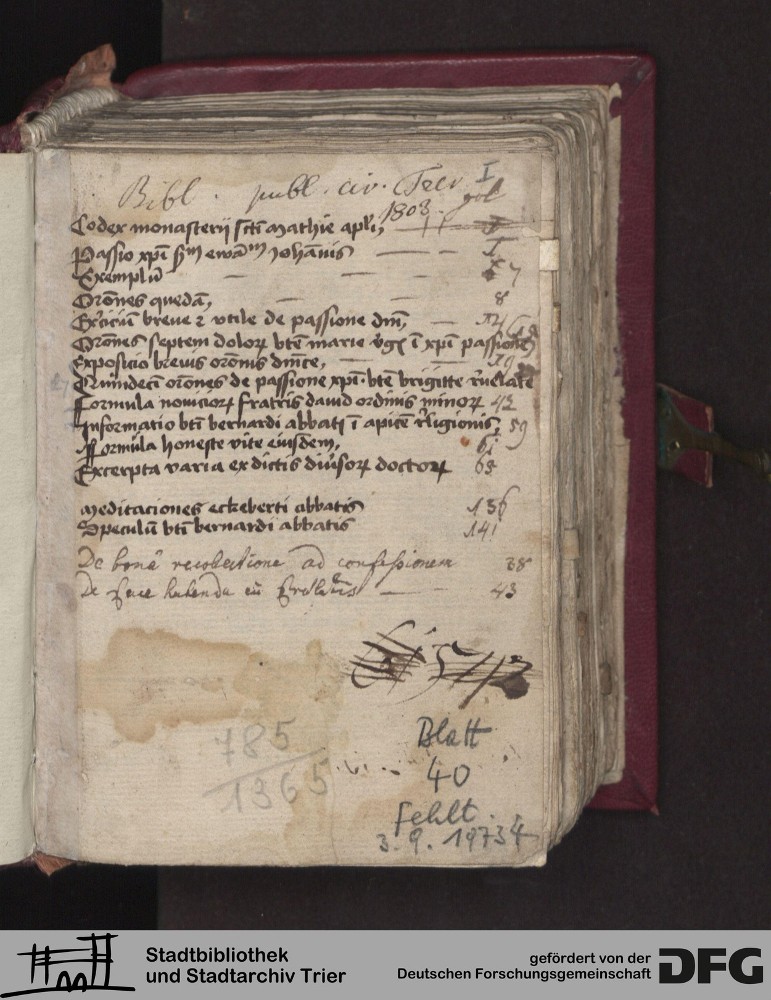 Bibl. publ. civ. Trev. I
1803.
Codex monasterij scti Mathie apli,
Passio xpi scdm ewā Johānis
Exemplū 7
Orōnes quedam, 8
breve z vtile de passione dni,
Orōnes septem dolorꝝ bte marie ī xpi passione
Exposicio brevis orōnis dnice,
Quindeci orōnes de passione xpi bte brigitte
Formula nouiciorꝝ fratris dauid ordinis minorꝝ 42
Informatio bti bernardi abbatis ī apicē religionis, 59
Formula honeste vite eiusdem, 61
Excerpta varia ex dictis diūsorꝝ doctorꝝ 63
Meditaciones eckeberti abbatis 136
Speculū bti bernardi abbatis 141
De bonâ recollectione ad confessionem 38
De pace habenda cū 43
785
1365
Blatt
40
fehlt.
3.9.1973
Stadtbibliothek
und Stadtarchiv Trier
gefördert von der
Deutschen Forschungsgemeinschaft
DFG